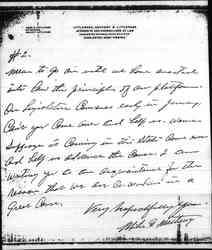 LITTLEPAGE, 
ATTORNEYS AND COUNSELORS AT LAW
CHARLESTON, WEST VIRGINIA
#2.
mean to go on until we have enacted
into law the principles of our platform.
Our Legislature Convenes early in January,
Can't you Come over and help us. Woman
Suffrage is Coming in this State Come over
and help us advance the Cause. I am
writing you to an acquaintance for the
reason that we are Co-workers in a
great Cause.
Very respectfully yours